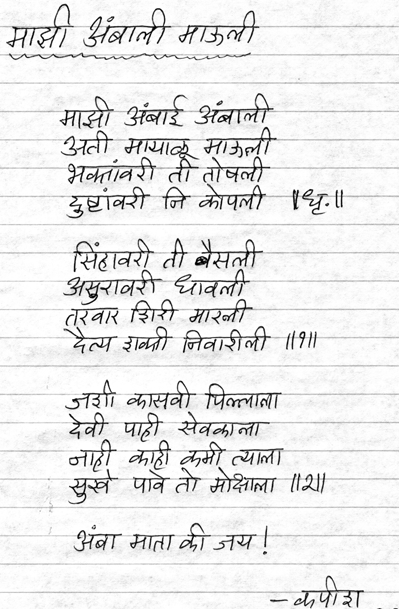 माझी अंबाली माऊली
माझी अंबाई अंबाली
अती मायाळू माऊली
भक्तांवरी ती तोषली
दुष्टांवरी नि कोपली ॥धृ.॥
सिंहावरी ती बैसली
असुरावरी धावली
तरवार शिरी मारली
दैत्य शक्ती निवारीली ॥१॥
जशी कासवी पिल्लाला
देवी पाही सेवकाला
नाही काही कमी त्याला
सुखे पावे तो मोक्षाला ॥२॥
अंबा माता की जय!
- कपीश